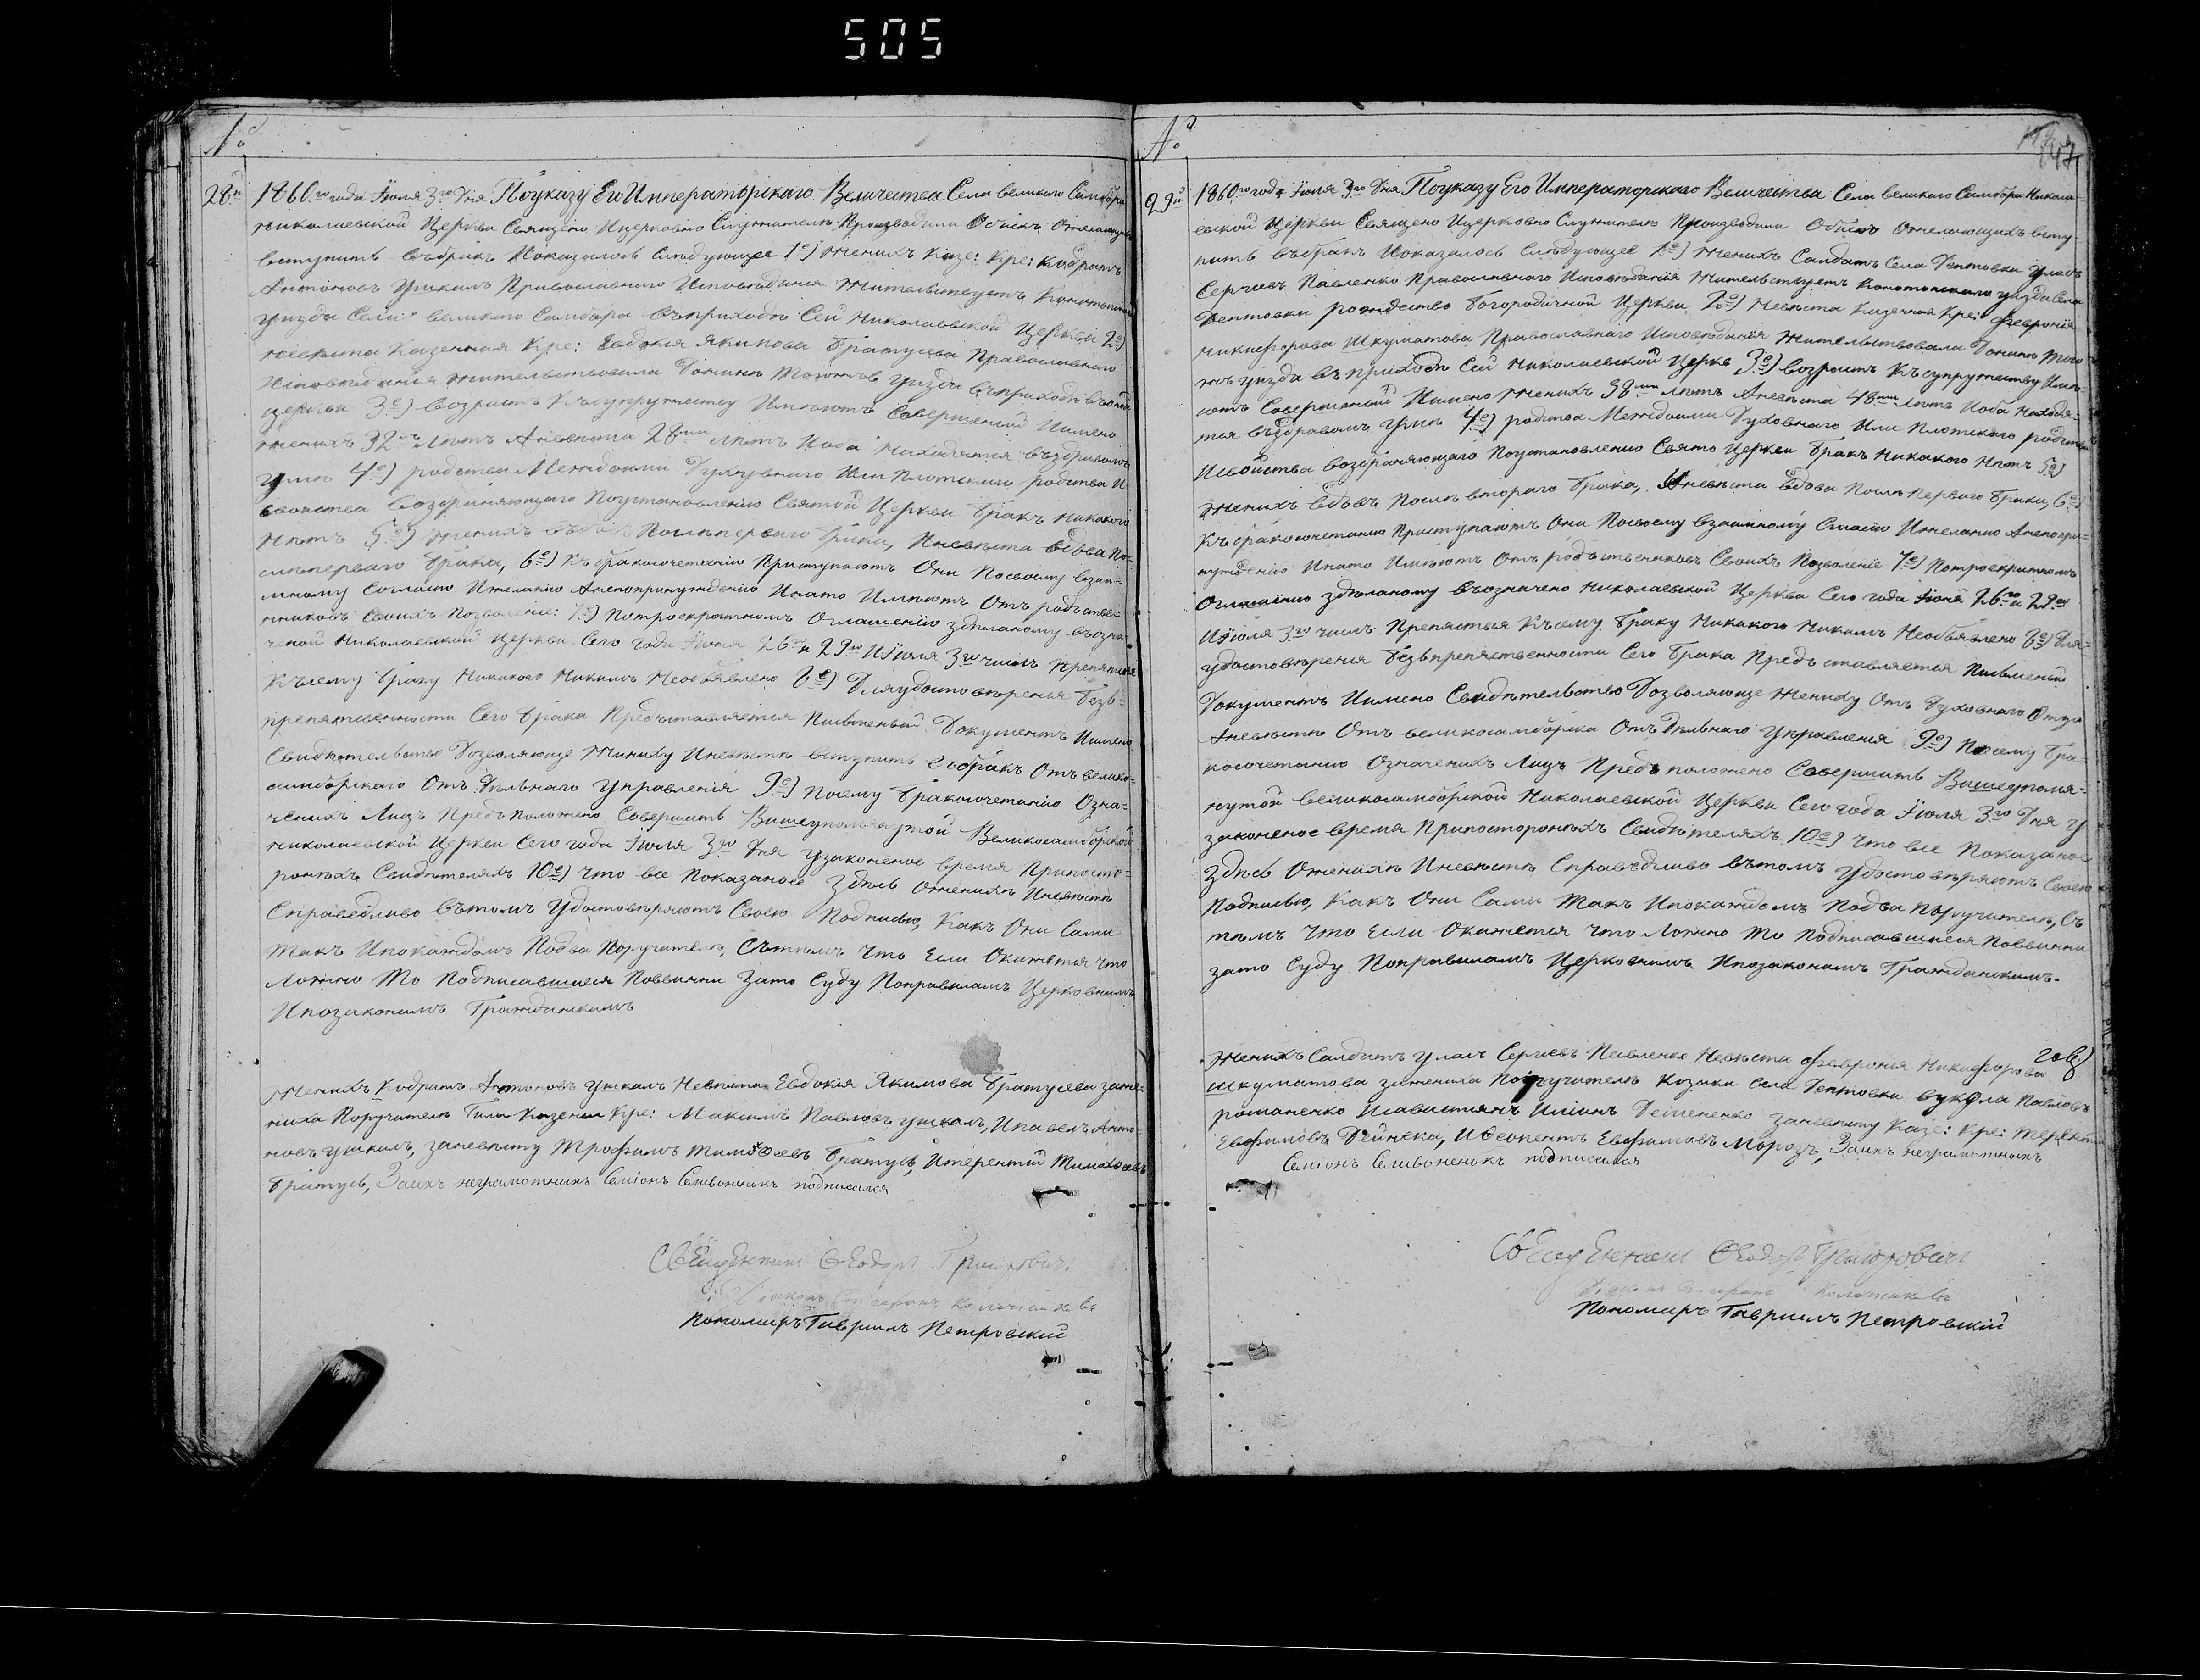 505
№
28й 1860го года Іюля 3го дня Поуказу Его Императорскаго Величества Села великаго Самбора
Николаевской Церкви Священо Ицерковно Служители Производили Обыскъ Ожелающихъ
вступить вбракъ Иоказалось Слѣдующее 1е) Женихъ Казе: Кре: Кодратъ
Антоновъ Ушкалъ Православнаго Исповѣданія Жительствуетъ Конотопскаго
уѣзда Села великаго Самбора въприходѣ Сей Николаевской Церкви 2е)
Невѣста Казенная Кре: Евдокія Якимова Братусева Православнаго
Исповѣданія жительствовала Донинѣ Тогожъ уѣзда въприходѣ
Церкви 3е) возрастъ Късупружеству Имѣютъ Совершений Иимено
Женихъ 32хъ Лѣтъ Аневѣста 28ми лѣтъ Иоба Находятся въздравомъ
умѣ 4е) родства Междоими Духовнаго Или Плотскаго родства И
свойства возбраняющаго Поустановленію Святой Церкви Бракъ Никакого
Нѣтъ 5е) Женихъ вдовъ Послѣперваго Брака, Иневѣста вдова По-
слѣперваго Брака, 6е) Къбракосочетанію Приступаютъ Они Посвоему взаи-
мному Согласію Ижеланію Анепопринужденію Инато Имѣютъ Отъ родстве-
никовъ Своихъ Позволеніе: 7е) Потроекратномъ Оглашенію зделаному въозна-
ченой Николаевской Церкви Сего года Іюня 26го и 29го Иіюля 3го числъ Препятствія
Късему Браку Никакого Никимъ Необъявлено 8е) Дляудостовѣренья Безъ-
препятственности Сего Брака Предъставляется Писменый Документъ Иимено
Свидѣтельство Дозволяюще Жениху Иневѣстѣ вступить вбракъ Отъ велико-
самборскаго Отъ Дѣльнаго Управленія 9е) Посему Бракосочетанію Озна-
ченихъ Лицъ Предъположено Совершить Вишеупомянутой Великосамборской
Николаевской Церкви Сего года Іюля 3го Дня узаконеное время Припосто-
роннихъ Свидѣтеляхъ 10е) что все Показаное Здѣсь Оженихѣ Иневѣстѣ
Справедливо вътомъ Удостовѣряютъ Своею Подписью, Какъ Они Сами
Такъ Ипокаждомъ Подва Поручителя, Сътѣмъ Что Если Окажется что
Ложно То Подписавшиеся Повинни Зато Суду Поправиламъ Церковнимъ
Ипозаконамъ Гражданскимъ
Женихъ Кодратъ Антоновъ Ушкалъ Невѣста Евдокія Якимова Братусева заже-
ниха Поручители Казении Кре: Максимъ Павловъ Ушкалъ, Ипавелъ Анто-
новъ Ушкалъ, заневѣсту Трофимъ Тимоѳеевъ Братусь, Итерентій Тимоѳеевъ
Братусь, Заихъ неграмотныхъ Семіонъ Селивоненокъ подписался
Священникъ Ѳеодоръ Григоровичъ
Діаконъ
Пономаръ Гавриилъ Петровский
№
29й 1860го года Іюля 3го дня Поуказу Его Императорскаго Величества Села великаго Самбора Никола-
евской Церкви Священо Ицерковно Служители Производили Обыскъ Ожелающихъ всту-
пить въбракъ Иоказалось Слѣдующее 1е) Женихъ Салдатъ Села Дептовки Уласъ
Сергіевъ Павленко Православнаго Исповѣданія Жительствуетъ Конотопскаго уѣзда Села
Дептовки рождество Богородичной Церкви 2е) Невѣста Казечная Кре: Февронія
Никифорова Шкуматова Православнаго Исповѣданія Жительствовали Донинѣ Того
жъ уѣзда въприходѣ Сей Николаевской Церкве 3е) возрастъ Късупружеству Имѣ-
ютъ Совершеный Иимено Женихъ 58ми лѣтъ Аневѣста 48ми лѣтъ Иоба находя-
тся въздравомъ умѣ 4е) родства Междоими Духовнаго Или Плотскаго родства
Исвойства возбраняющаго Поустановленію Свято Церкви Бракъ Никакого Нѣтъ 5е)
Женихъ вдовъ Послѣ втораго Брака, Аневѣста вдова Послѣ Перваго Брака, 6е)
Къбракосочетанію Приступаютъ Они Посвоему взаимному Сгласію Ижеланію Анепопри-
нужденію Инато Имѣютъ Отъ родъственниковъ Своихъ Позволеніе 7е) Потроекратномъ
Оглашенію зделаному възначено Николаевской Церкви Сего года Іюня 26го и 29го
Иіюля 3го числъ Препятствія Късему Браку Никакого Никимъ Необъявлено 8е) Для-
удостовѣренія Безъпрепятственности Сего Брака Предъставляется Писменый
Документъ Иимено Свидѣтельство Дозволяюще Жениху Отъ Духовнаго Отца
Аневѣсте Отъ великосамборска Отъ Дѣльнаго Управленія 9е) Посему Бра-
косочетанію Означенихъ Лицъ Предъположено Совершить Вишеупомя-
нутой великосамборской Николаевской Церкви Сего года Іюля 3го Дня у
законеное время Припосторонихъ Свидѣтеляхъ 10е) что все Показаное
Здѣсь Оженихѣ Иневѣстѣ Справѣдливо вътомъ Удостовѣряютъ Своею
Подписью, Какъ Они Сами Такъ Ипокаждомъ Подва Поручителя, Съ
тѣмъ Что Если Окажется Что Ложно То Подписавшиеся Повинни
зато Суду Поправиламъ Церковнимъ Ипозаконамъ Гражданскимъ.
Женихъ Салдатъ Уласъ Сергіевъ Павленко Невѣста Февронія Никифорова
Шкуматова зажениха Поручители Козаки Села Дептовки Вукола Павловъ
романенко Исавастіянъ Иліинъ Деіменко заневѣсту Казе: Кре: Терентій
Евфимовъ Дейнека, Иѳеопентъ Евфимовъ Морозъ, Заихъ неграмотныхъ
Семіонъ Селивоненокъ подписался
Священникъ Ѳеодоръ Григоровичъ
Пономаръ Гавриилъ Петровскій